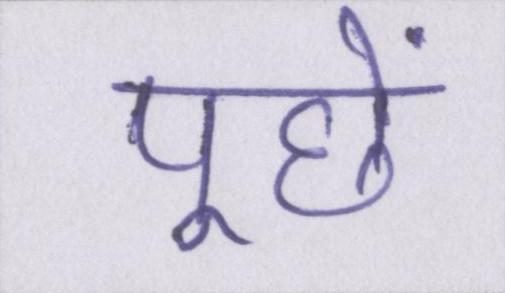 पूछें